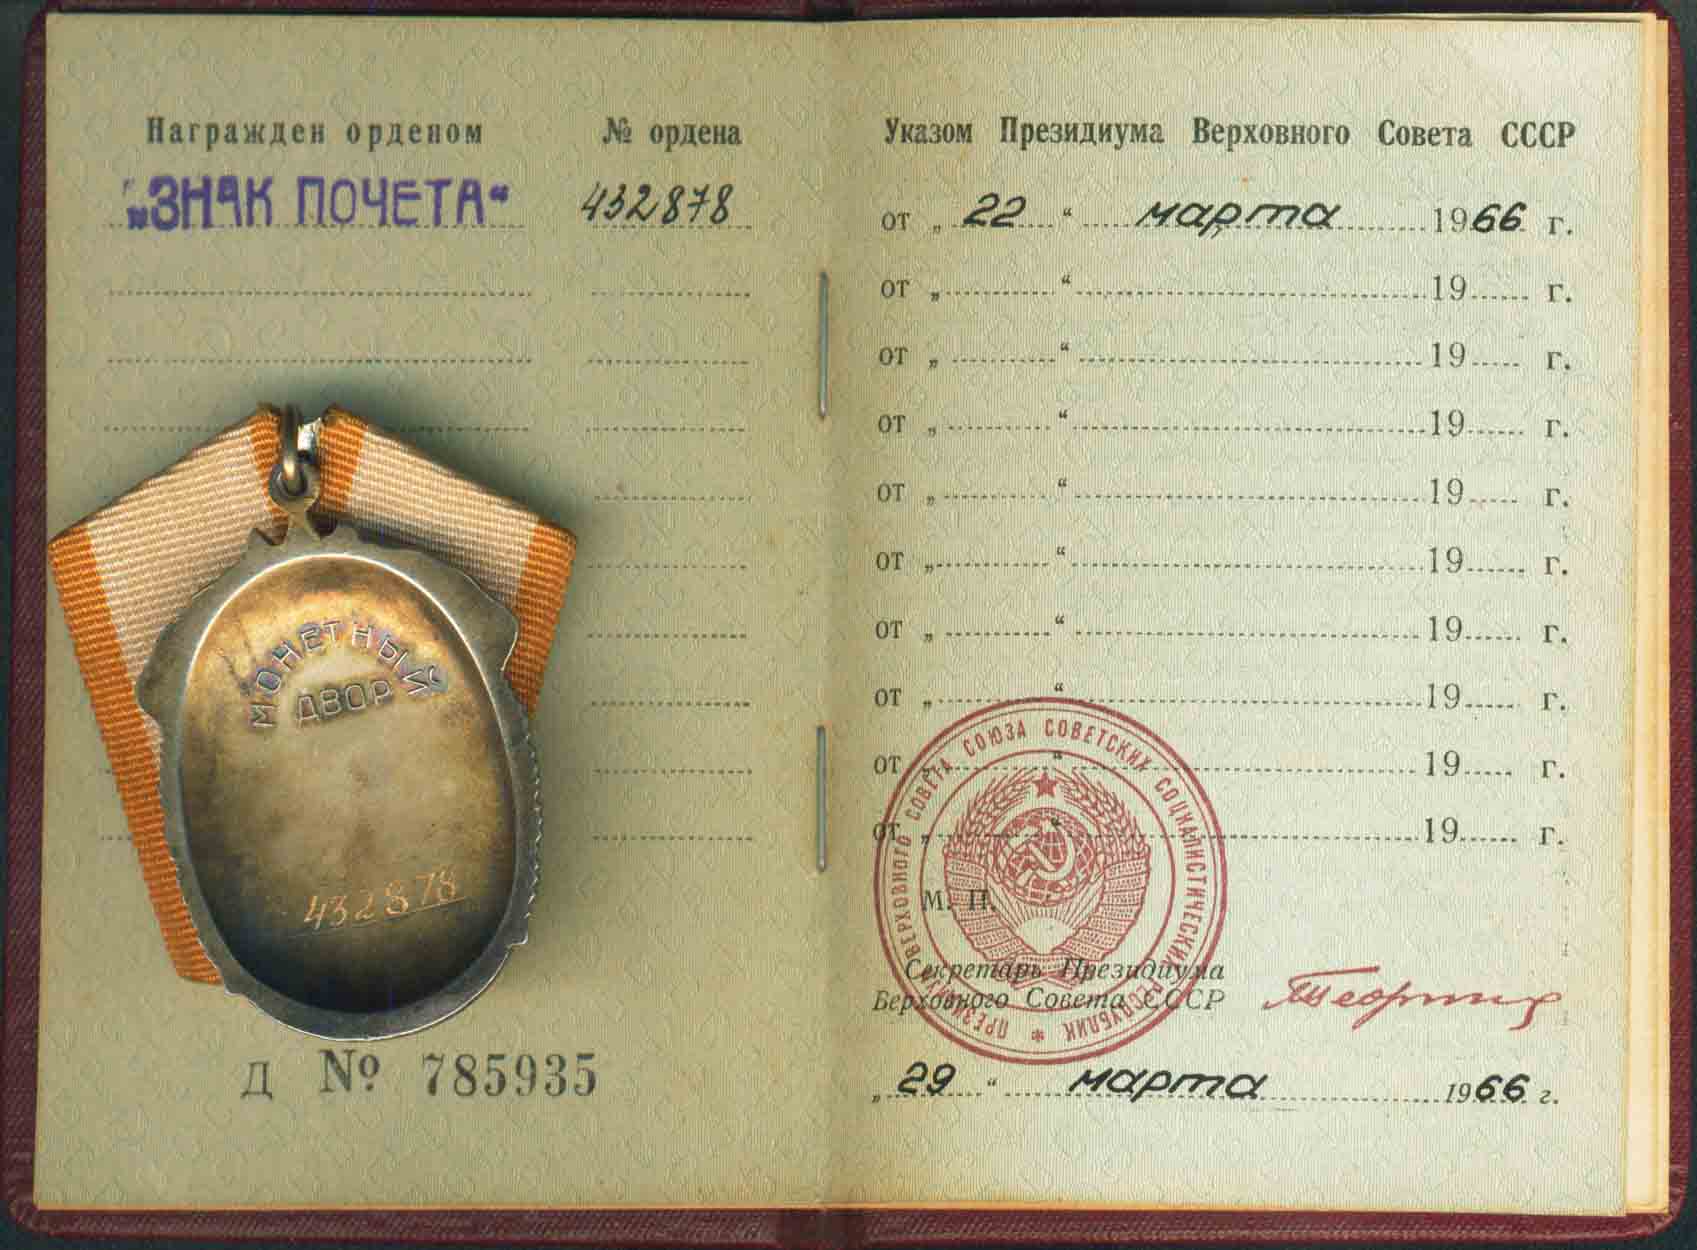 Награжден орденом № ордена
„ЗНАК ПОЧЕТА“ 432878
МОНЕТНЫЙ
ДВОР
432878
Д № 785935
Указом Президиума Верховного Совета СССР
от „ 22 “ марта 1966 г.
от „ “ 19 г.
от „ “ 19 г.
от „ “ 19 г.
от „ “ 19 г.
от „ “ 19 г.
от „ “ 19 г.
от „ “ 19 г.
от „ “ 19 г.
от „ “ 19 г.
ПРЕЗИДИУМ ВЕРХОВНОГО СОВЕТА СОЮЗА СОВЕТСКИХ СОЦИАЛИСТИЧЕСКИХ РЕСПУБЛИК *
М. П.
Секретарь Президиума
Верховного Совета СССР
„ 29 “ марта 1966 г.